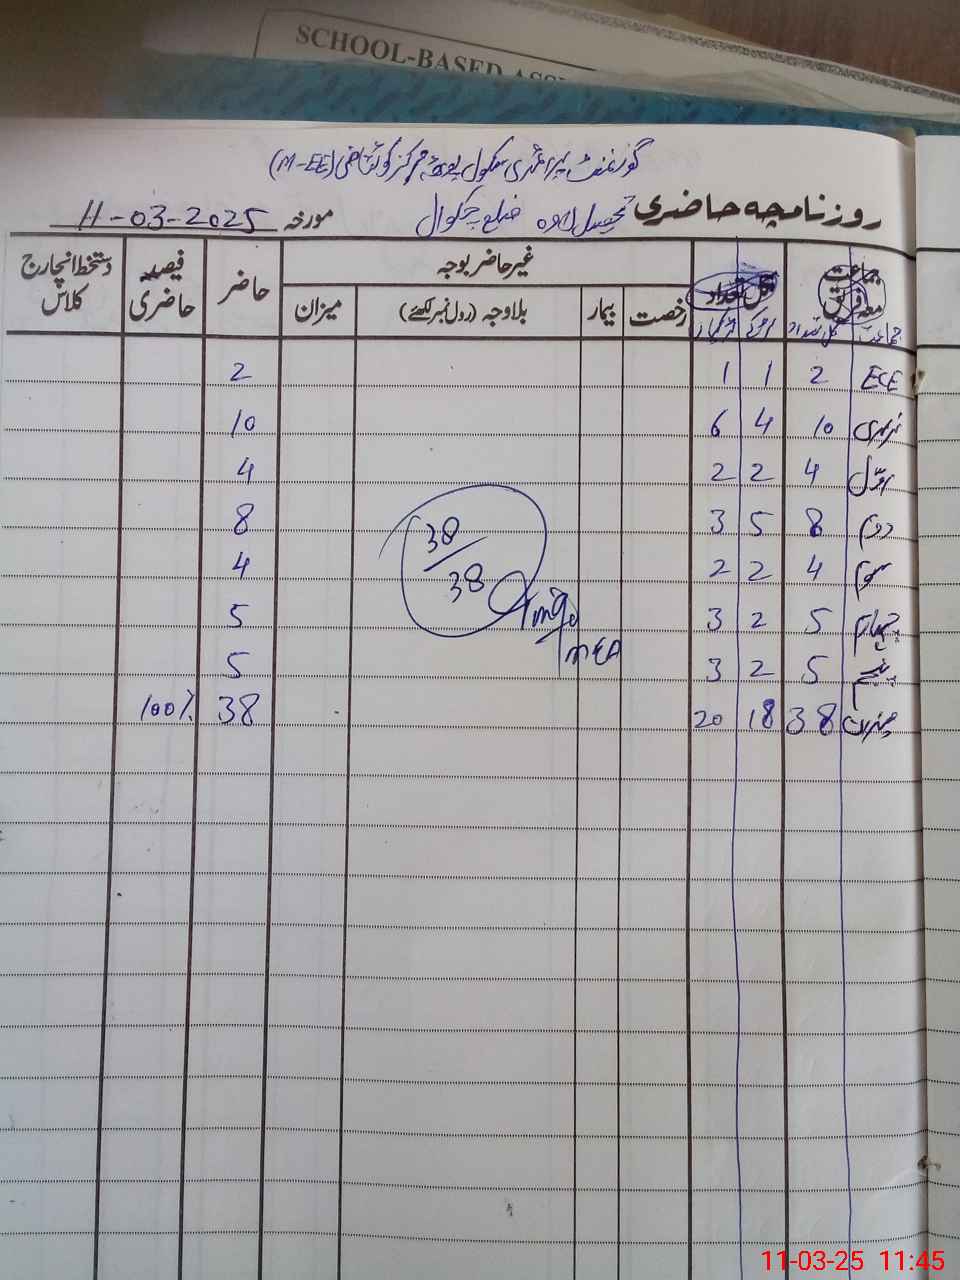 SCHOOL-BASED ASS
گورنمنٹ پرائمری سکول مرکز (M-EE)
روزنامچہ حاضری تحصیل لاوہ ضلع چکوال مورخہ 11-03-2025
جماعت معہ فریق کل تعداد غیر حاضر بوجہ حاضر فیصد حاضری دستخط انچارج کلاس
جماعت کل تعداد لڑکے لڑکیاں رخصت بیمار بلاوجہ (رول نمبر لکھئے) میزان
ECE 2 1 1 2
نرسری 10 4 6 10
اول 4 2 2 4
دوم 8 5 3 8
سوم 4 2 2 4
چہارم 5 2 3 5
پنجم 5 2 3 5
میزان 38 18 20 38 100%
38/38
MEA
11-03-25 11:45